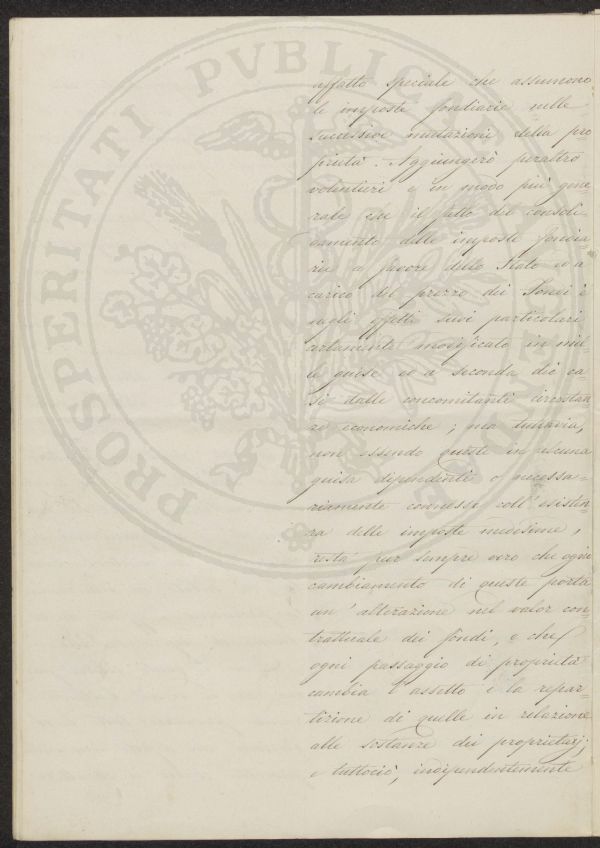 affatto speciale che assumono
le imposte fondiarie nelle
successive mutazioni della pro
prietà. Aggiungerò peraltro
volentieri e in modo più gene
rale che il fatto del consoli
damento delle imposte fondia
rie a favore dello Stato ed a
carico del prezzo dei Fondi è
negli effetti suoi particolari
certamente modificato in mil
le guise ed a seconda dei ca-
si dalle concomitanti circostan
ze economiche; ma tuttavia,
non essendo queste in veruna
guisa dipendenti o necessa-
riamente connesse coll'esisten
za delle imposte medesime,
resta pur sempre vero che ogni
cambiamento di queste porta
un'alterazione nel valor con
trattuale dei fondi, e che
ogni passaggio di proprietà
cambia l'assetto e la repar-
tizione di quelle in relazione
alle sostanze dei proprietarj;
e tuttociò, indipendentemente
PROSPERITATI PVBLICAE